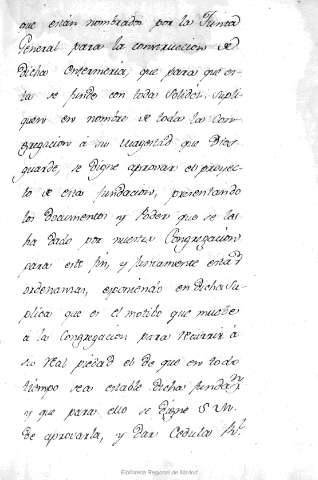 que están nombrados por la Junta
General para la conservacion de
dicha enfermeria, que para que es-
ta se funde con toda solidéz, supli-
quen en nombre de toda la Con-
gregacion á su Magestad que Dios
guarde, se digne aprovar el proyec-
to de esta fundacion, presentando
los documentos y Poder que se les
ha dado por nuestra Congregacion
para este fin, y juntamente estas
ordenanzas, exponiendo en dicha su-
plica que es el motibo que mueve
á la Congregacion para recurrir á
su real piedad el de que en todo
tiempo sea estable dicha fundan.
y que para ello se digne S. M.
de aprovarla, y dar Cedula Rl.
Biblioteca Regional de Madrid